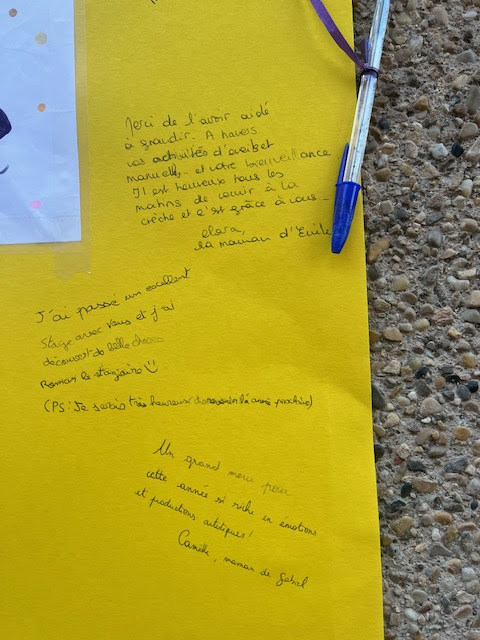 Merci de l'avoir aidé
à grandir. A travers
vos activités d'éveil et
manuelles... et votre bienveillance
Il est heureux tous les
matins de venir à la
crèche et c'est grâce à vous...
Clara,
la maman d'Emile
J'ai passé un excellent
stage avec vous et j'ai
découvert de belle choses
Roman le stagiaire
(PS: Je serais très heureux de revenir l'année prochaine)
Un grand merci pour
cette année si riche en émotions
et productions artistiques!
Camille, maman de Gabriel